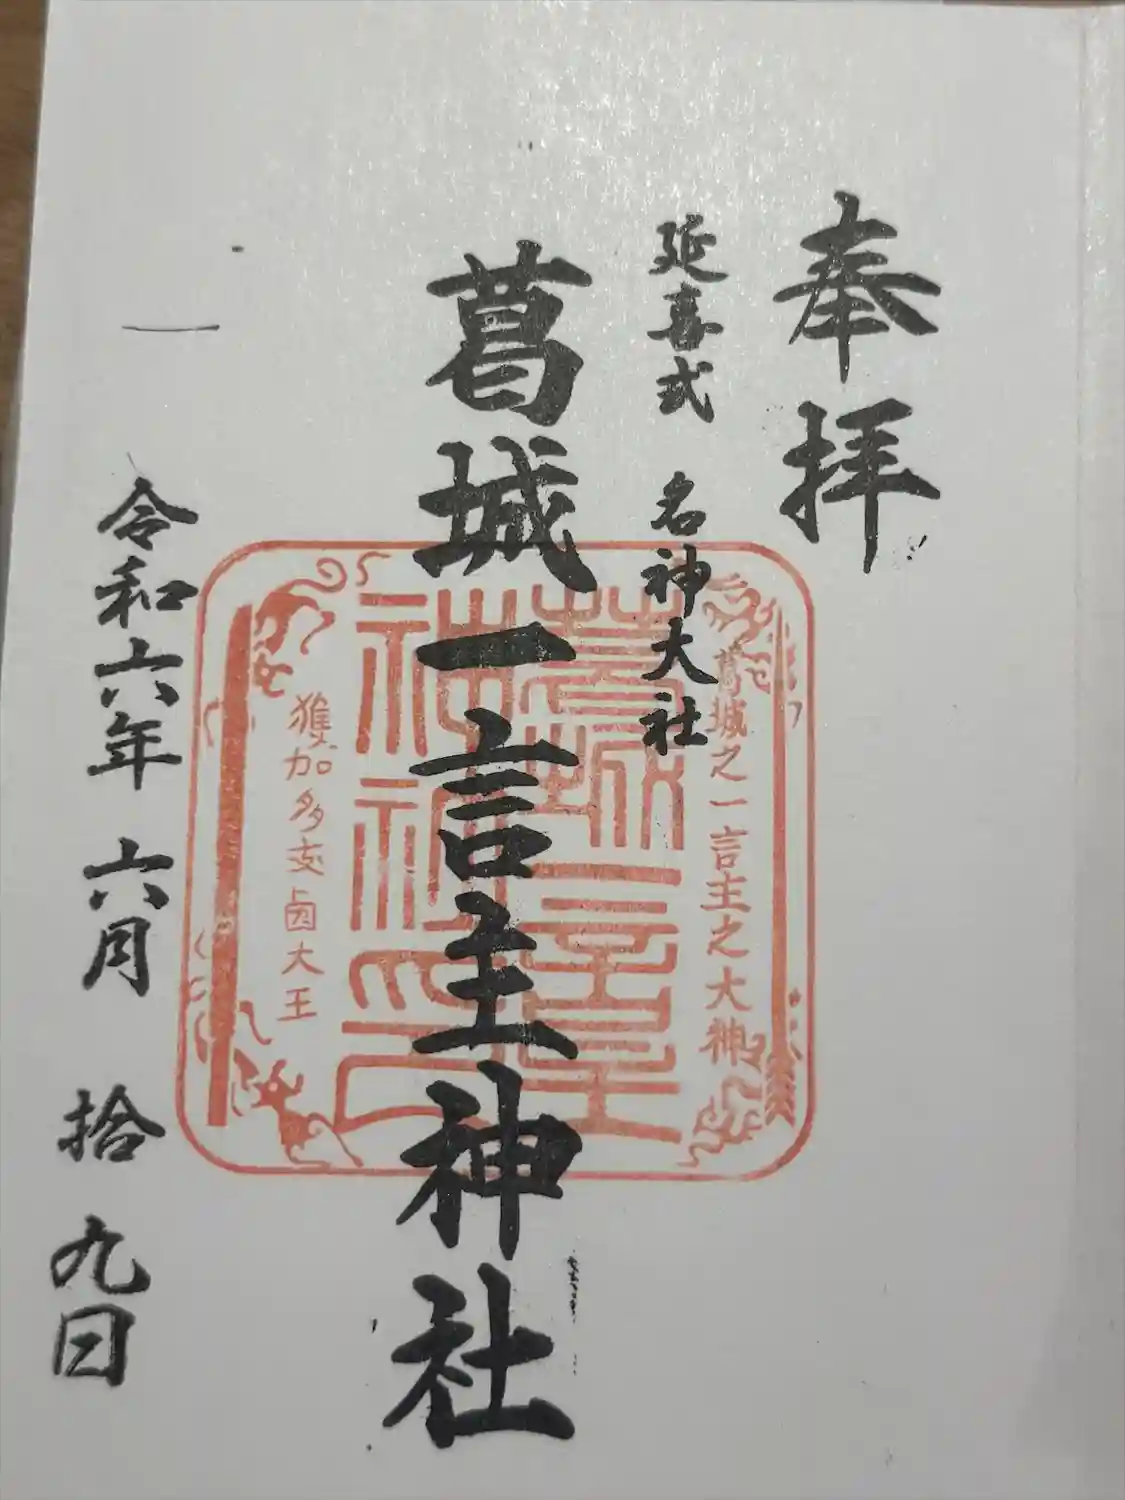 奉拝
延喜式 名神大社
葛城一言主神社
葛城之一言主之大神
葛城一言主
神社神印
獲加多支鹵大王
令和六年 六月 拾九日